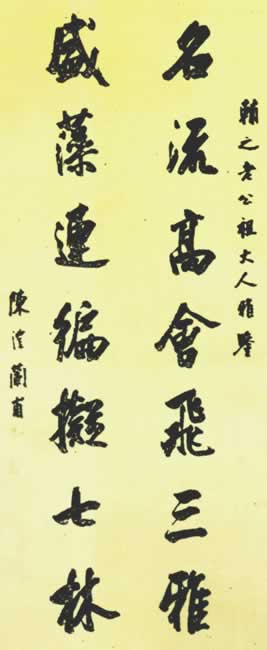 輔之老公祖大人雅鑒
名流高會飛三雅
盛藻連編擬七林
陳澧蘭甫